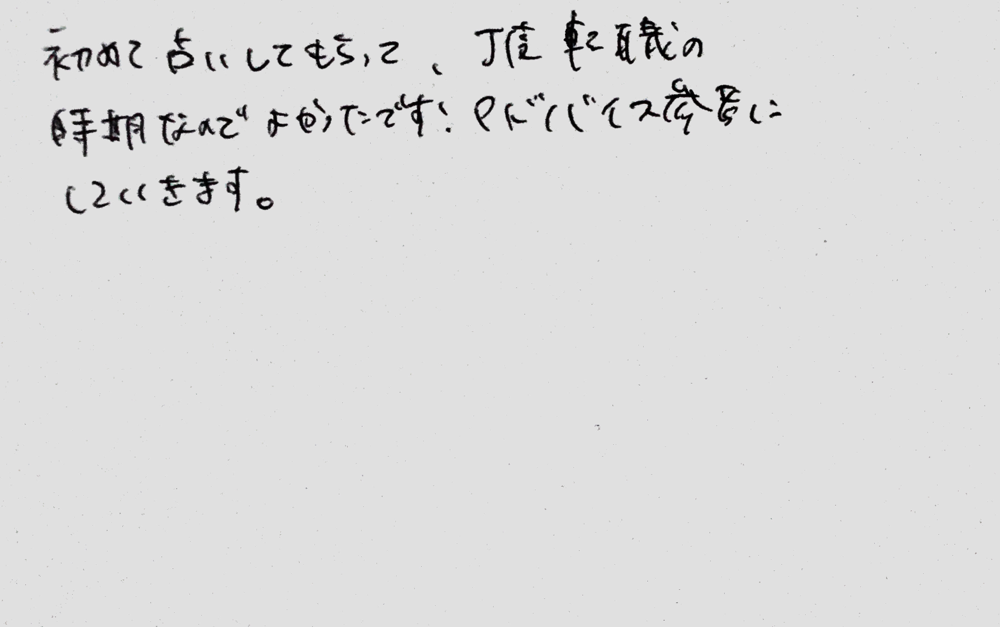 初めて占いしてもらって、丁度転職の
時期なのでよかったです！アドバイス参考に
していきます。